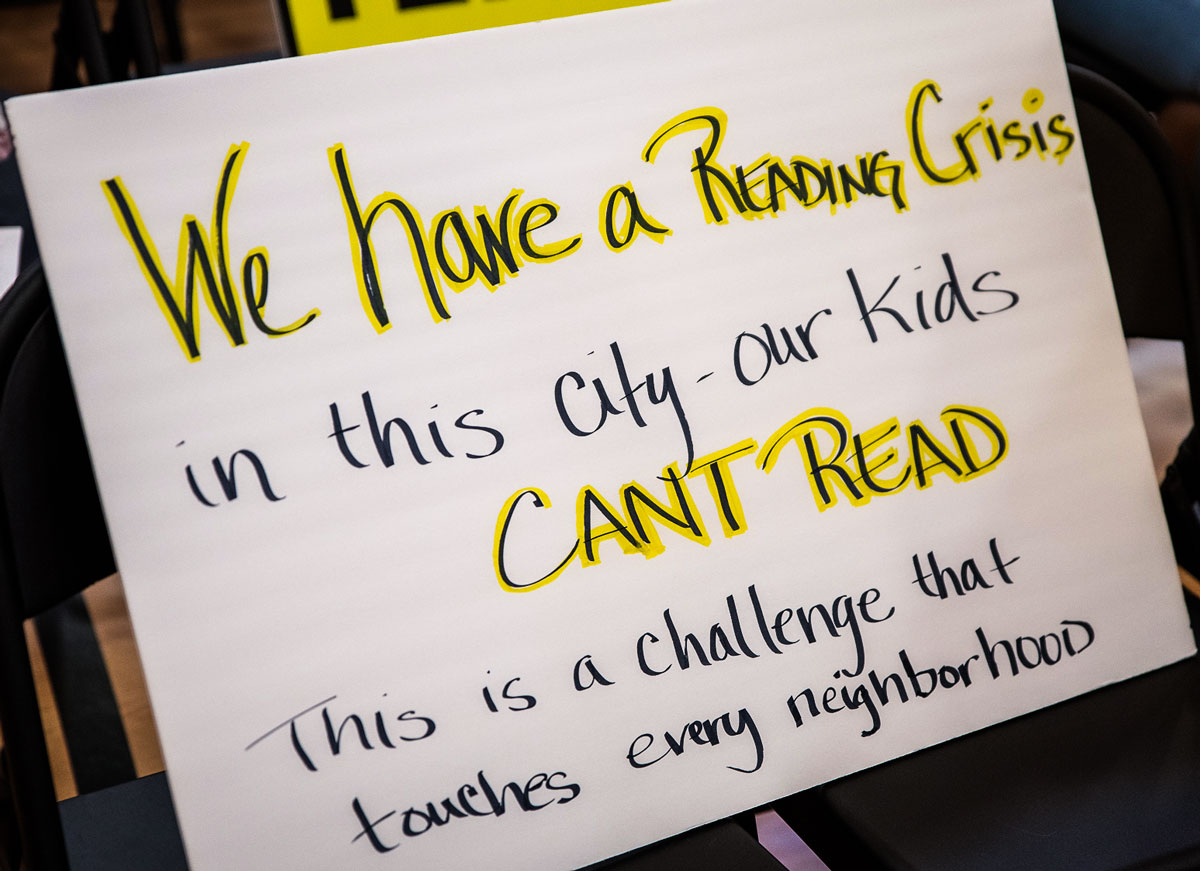 We have a READING Crisis
in this city - our kids
CANT READ
This is a challenge that
touches every neighborhood